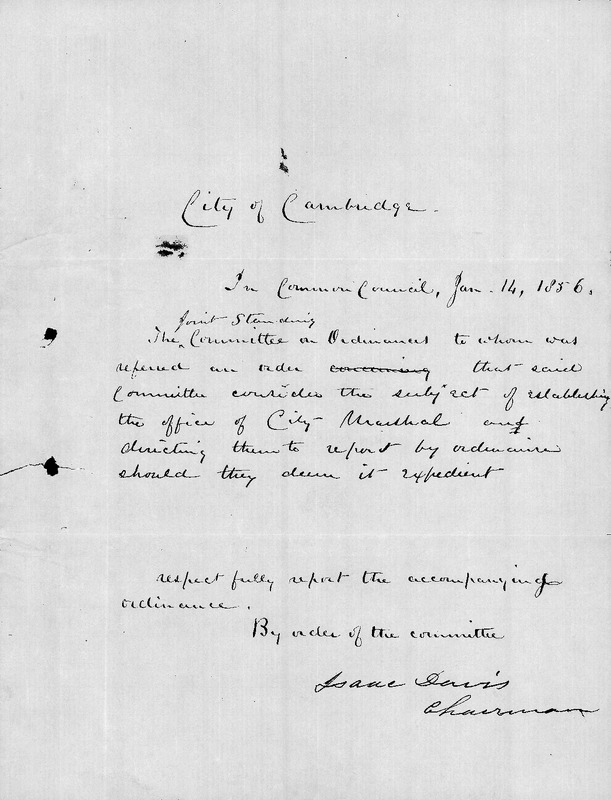 City of Cambridge.
In Common Council, Jan. 14, 1856.
Joint Standing
The ‸ Committee on Ordinances to whom was
referred an order ~~concerning~~ that said
Committee consider the subject of establishing
the office of City Marshal and
directing them to report by ordinance
should they deem it expedient
respectfully report the accompanying
ordinance.
By order of the committee
Isaac Davis
Chairman